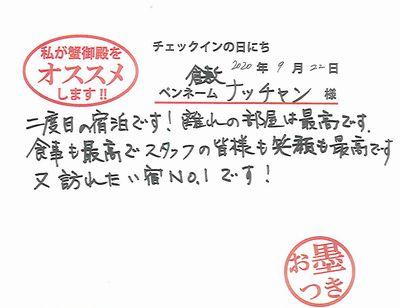 私が蟹御殿を
オススメ
します!!
チェックインの日にち
2020年9月22日
倉敷
ペンネーム ナッチャン 様
二度目の宿泊です!離れの部屋は最高です.
食事も最高でスタッフの皆様も笑顔も最高です
又訪れたい宿NO.1です!
お墨
つき